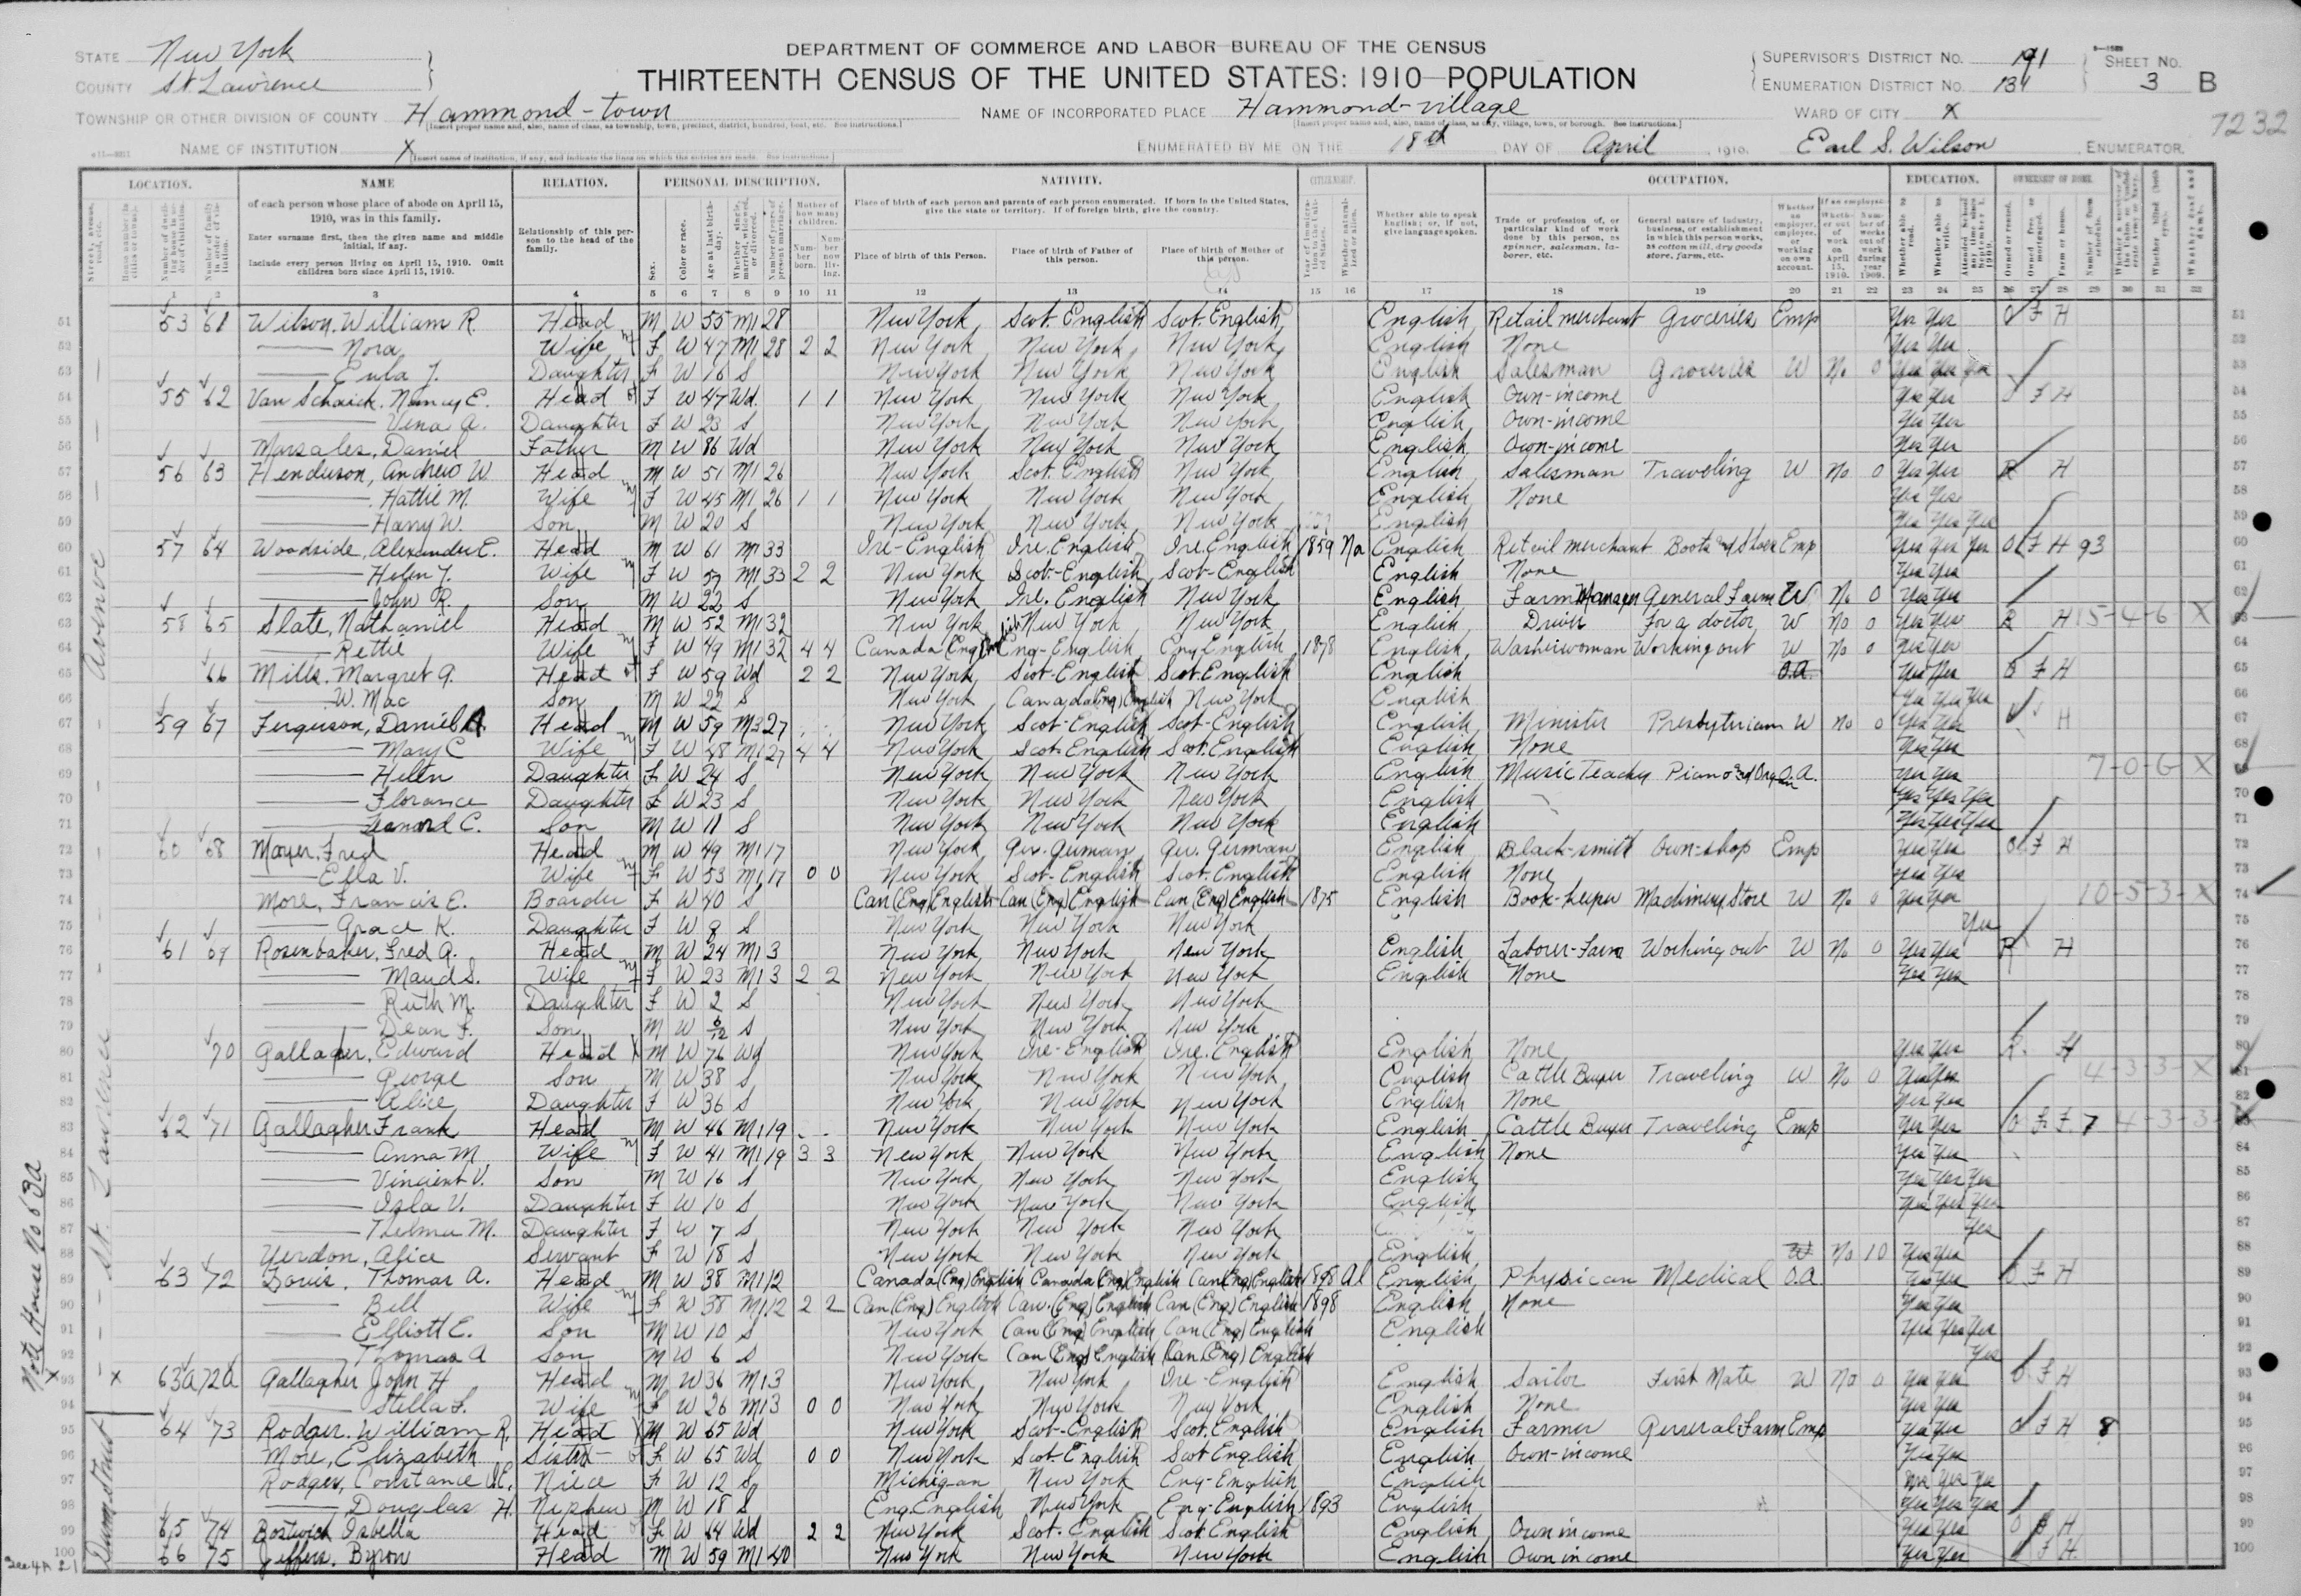 STATE New York
COUNTY St. Lawrence
DEPARTMENT OF COMMERCE AND LABOR—BUREAU OF THE CENSUS
THIRTEENTH CENSUS OF THE UNITED STATES: 1910—POPULATION
SUPERVISOR'S DISTRICT NO. 191
ENUMERATION DISTRICT NO. 134
SHEET NO. 3 B
TOWNSHIP OR OTHER DIVISION OF COUNTY Hammond-town
NAME OF INCORPORATED PLACE Hammond-village
WARD OF CITY X
7232
NAME OF INSTITUTION X
ENUMERATED BY ME ON THE 18th DAY OF April, 1910. Earl S. Wilson, ENUMERATOR.
LOCATION. NAME RELATION. PERSONAL DESCRIPTION. NATIVITY. CITIZENSHIP. OCCUPATION. EDUCATION. OWNERSHIP OF HOME.
of each person whose place of abode on April 15, 1910, was in this family.
Enter surname first, then the given name and middle initial, if any.
Include every person living on April 15, 1910. Omit children born since April 15, 1910.
Relationship of this person to the head of the family.
Place of birth of each person and parents of each person enumerated. If born in the United States, give the state or territory. If of foreign birth, give the country.
Place of birth of this Person. Place of birth of Father of this person. Place of birth of Mother of this person.
Whether able to speak English; or, if not, give language spoken.
Trade or profession of, or particular kind of work done by this person, as spinner, salesman, laborer, etc.
General nature of industry, business, or establishment in which this person works, as cotton mill, dry goods store, farm, etc.
1 2 3 4 5 6 7 8 9 10 11 12 13 14 15 16 17 18 19 20 21 22 23 24 25 26 27 28 29 30 31 32
51 53 61 Wilson, William R. Head M W 55 M1 28 New York Scot. English Scot. English English Retail merchant Groceries Emp Yes Yes O F H
52 Nora Wife F W 47 M1 28 2 2 New York New York New York English None Yes Yes
53 Eula J. Daughter F W 16 S New York New York New York English Salesman Groceries W No 0 Yes Yes Yes
54 55 62 Van Schaick, Nancy E. Head F W 47 Wd 1 1 New York New York New York English Own-income Yes Yes F H
55 Vena A. Daughter F W 23 S New York New York New York English Own-income Yes Yes
56 Marsales, Daniel Father M W 86 Wd New York New York New York English Own-income Yes Yes
57 56 63 Henderson, Andrew W. Head M W 51 M1 26 New York Scot. English New York English Salesman Traveling W No 0 Yes Yes R H
58 Hattie M. Wife F W 45 M1 26 1 1 New York New York New York English None Yes Yes
59 Harry W. Son M W 20 S New York New York New York English Yes Yes Yes
60 57 64 Woodside, Alexander E. Head M W 61 M1 33 Ire-English Ire. English Ire. English 1859 Na English Retail merchant Boots and Shoes Emp Yes Yes Yes O F H 93
61 Helen J. Wife F W 57 M1 33 2 2 New York Scot-English Scot-English English None Yes Yes
62 John R. Son M W 22 S New York Ire. English New York English Farm Manager General Farm W No 0 Yes Yes
63 58 65 Slate, Nathaniel Head M W 52 M1 32 New York New York New York English Driver For a doctor W No 0 Yes Yes R H 15-4-6 X
64 Rettie Wife F W 49 M1 32 4 4 Canada (Eng) English Eng-English Eng English 1878 English Washerwoman Working out W No 0 Yes Yes
65 66 Mills, Margret A. Head F W 59 Wd 2 2 New York Scot-English Scot. English English O.A. Yes Yes O F H
66 W. Mac Son M W 22 S New York Canada (Eng) English New York English Yes Yes Yes
67 59 67 Ferguson, Daniel A. Head M W 59 M3 27 New York Scot-English Scot-English English Minister Presbyterian W No 0 Yes Yes H
68 Mary C. Wife F W 48 M1 27 4 4 New York Scot. English Scot. English English None Yes Yes
69 Helen Daughter F W 24 S New York New York New York English Music Teacher Piano and Organ O.A. Yes Yes 7-0-6 X
70 Florance Daughter F W 23 S New York New York New York English Yes Yes Yes
71 Leanord C. Son M W 11 S New York New York New York English Yes Yes Yes
72 60 68 Moyer, Fred Head M W 49 M1 17 New York Ger. German Ger. German English Black-smith Own-shop Emp Yes Yes O F H
73 Ella V. Wife F W 53 M1 17 0 0 New York Scot-English Scot. English English None Yes Yes
74 More, Francis E. Boarder F W 40 S Can (Eng) English Can (Eng) English Can (Eng) English 1875 English Book-keeper Machinery Store W No 0 Yes Yes 10-5-3-X
75 Grace K. Daughter F W 8 S New York New York New York Yes
76 61 69 Rosenbaker, Fred A. Head M W 24 M1 3 New York New York New York English Labour-Farm Working out W No 0 Yes Yes R H
77 Maud S. Wife F W 23 M1 3 2 2 New York New York New York English None Yes Yes
78 Ruth M. Daughter F W 2 S New York New York New York
79 Dean F. Son M W 6/12 S New York New York New York
80 70 Gallagher, Edward Head M W 76 Wd New York Ire-English Ire. English English None Yes Yes R. H
81 George Son M W 38 S New York New York New York English Cattle Buyer Traveling W No 0 Yes Yes 4-3-3-X
82 Alice Daughter F W 36 S New York New York New York English None Yes Yes
83 62 71 Gallagher Frank Head M W 46 M1 19 New York New York New York English Cattle Buyer Traveling Emp Yes Yes O F F 7 4-3-3
84 Anna M. Wife F W 41 M1 19 3 3 New York New York New York English None Yes Yes
85 Vincient V. Son M W 16 S New York New York New York English Yes Yes Yes
86 Isla V. Daughter F W 10 S New York New York New York English Yes Yes Yes
87 Thelma M. Daughter F W 7 S New York New York New York Yes
88 Yerdon, Alice Servant F W 18 S New York New York New York English W No 10 Yes Yes
89 63 72 Thomas A. Head M W 38 M1 12 Canada (Eng) English Canada (Eng) English Can (Eng) English 1898 Al English Physican Medical O.A. Yes Yes O F H
90 Bell Wife F W 38 M1 12 2 2 Can (Eng) English Can. (Eng) English Can (Eng) English 1898 English None Yes Yes
91 Elliott E. Son M W 10 S New York Can (Eng) English Can (Eng) English English Yes Yes Yes
92 Thomas A Son M W 6 S New York Can (Eng) English Can (Eng) English Yes
93 X 63a 72a Gallagher John H Head M W 36 M1 3 New York New York Ire-English English Sailor First Mate W No 0 Yes Yes O F H
94 Stella F. Wife F W 26 M1 3 0 0 New York New York New York English None Yes Yes
95 64 73 Rodger, William R. Head M W 65 Wd New York Scot-English Scot. English English Farmer General Farm Emp Yes Yes O F H 8
96 More, Elizabeth Sister F W 65 Wd 0 0 New York Scot-English Scot English English Own-income Yes Yes
97 Rodger, Constance Niece F W 12 S Michigan New York Eng-English English Yes Yes Yes
98 Douglas H. Nephew M W 18 S Eng. English New York Eng-English 1893 English Yes Yes Yes
99 65 74 Bostwick Isbella Head F W 64 Wd 2 2 New York Scot. English Scot English English Own income Yes Yes O F H
100 66 75 Jeffers, Byron Head M W 59 M1 40 New York New York New York English Own income Yes Yes F H
St. Lawrence Avenue
Note House No 63a